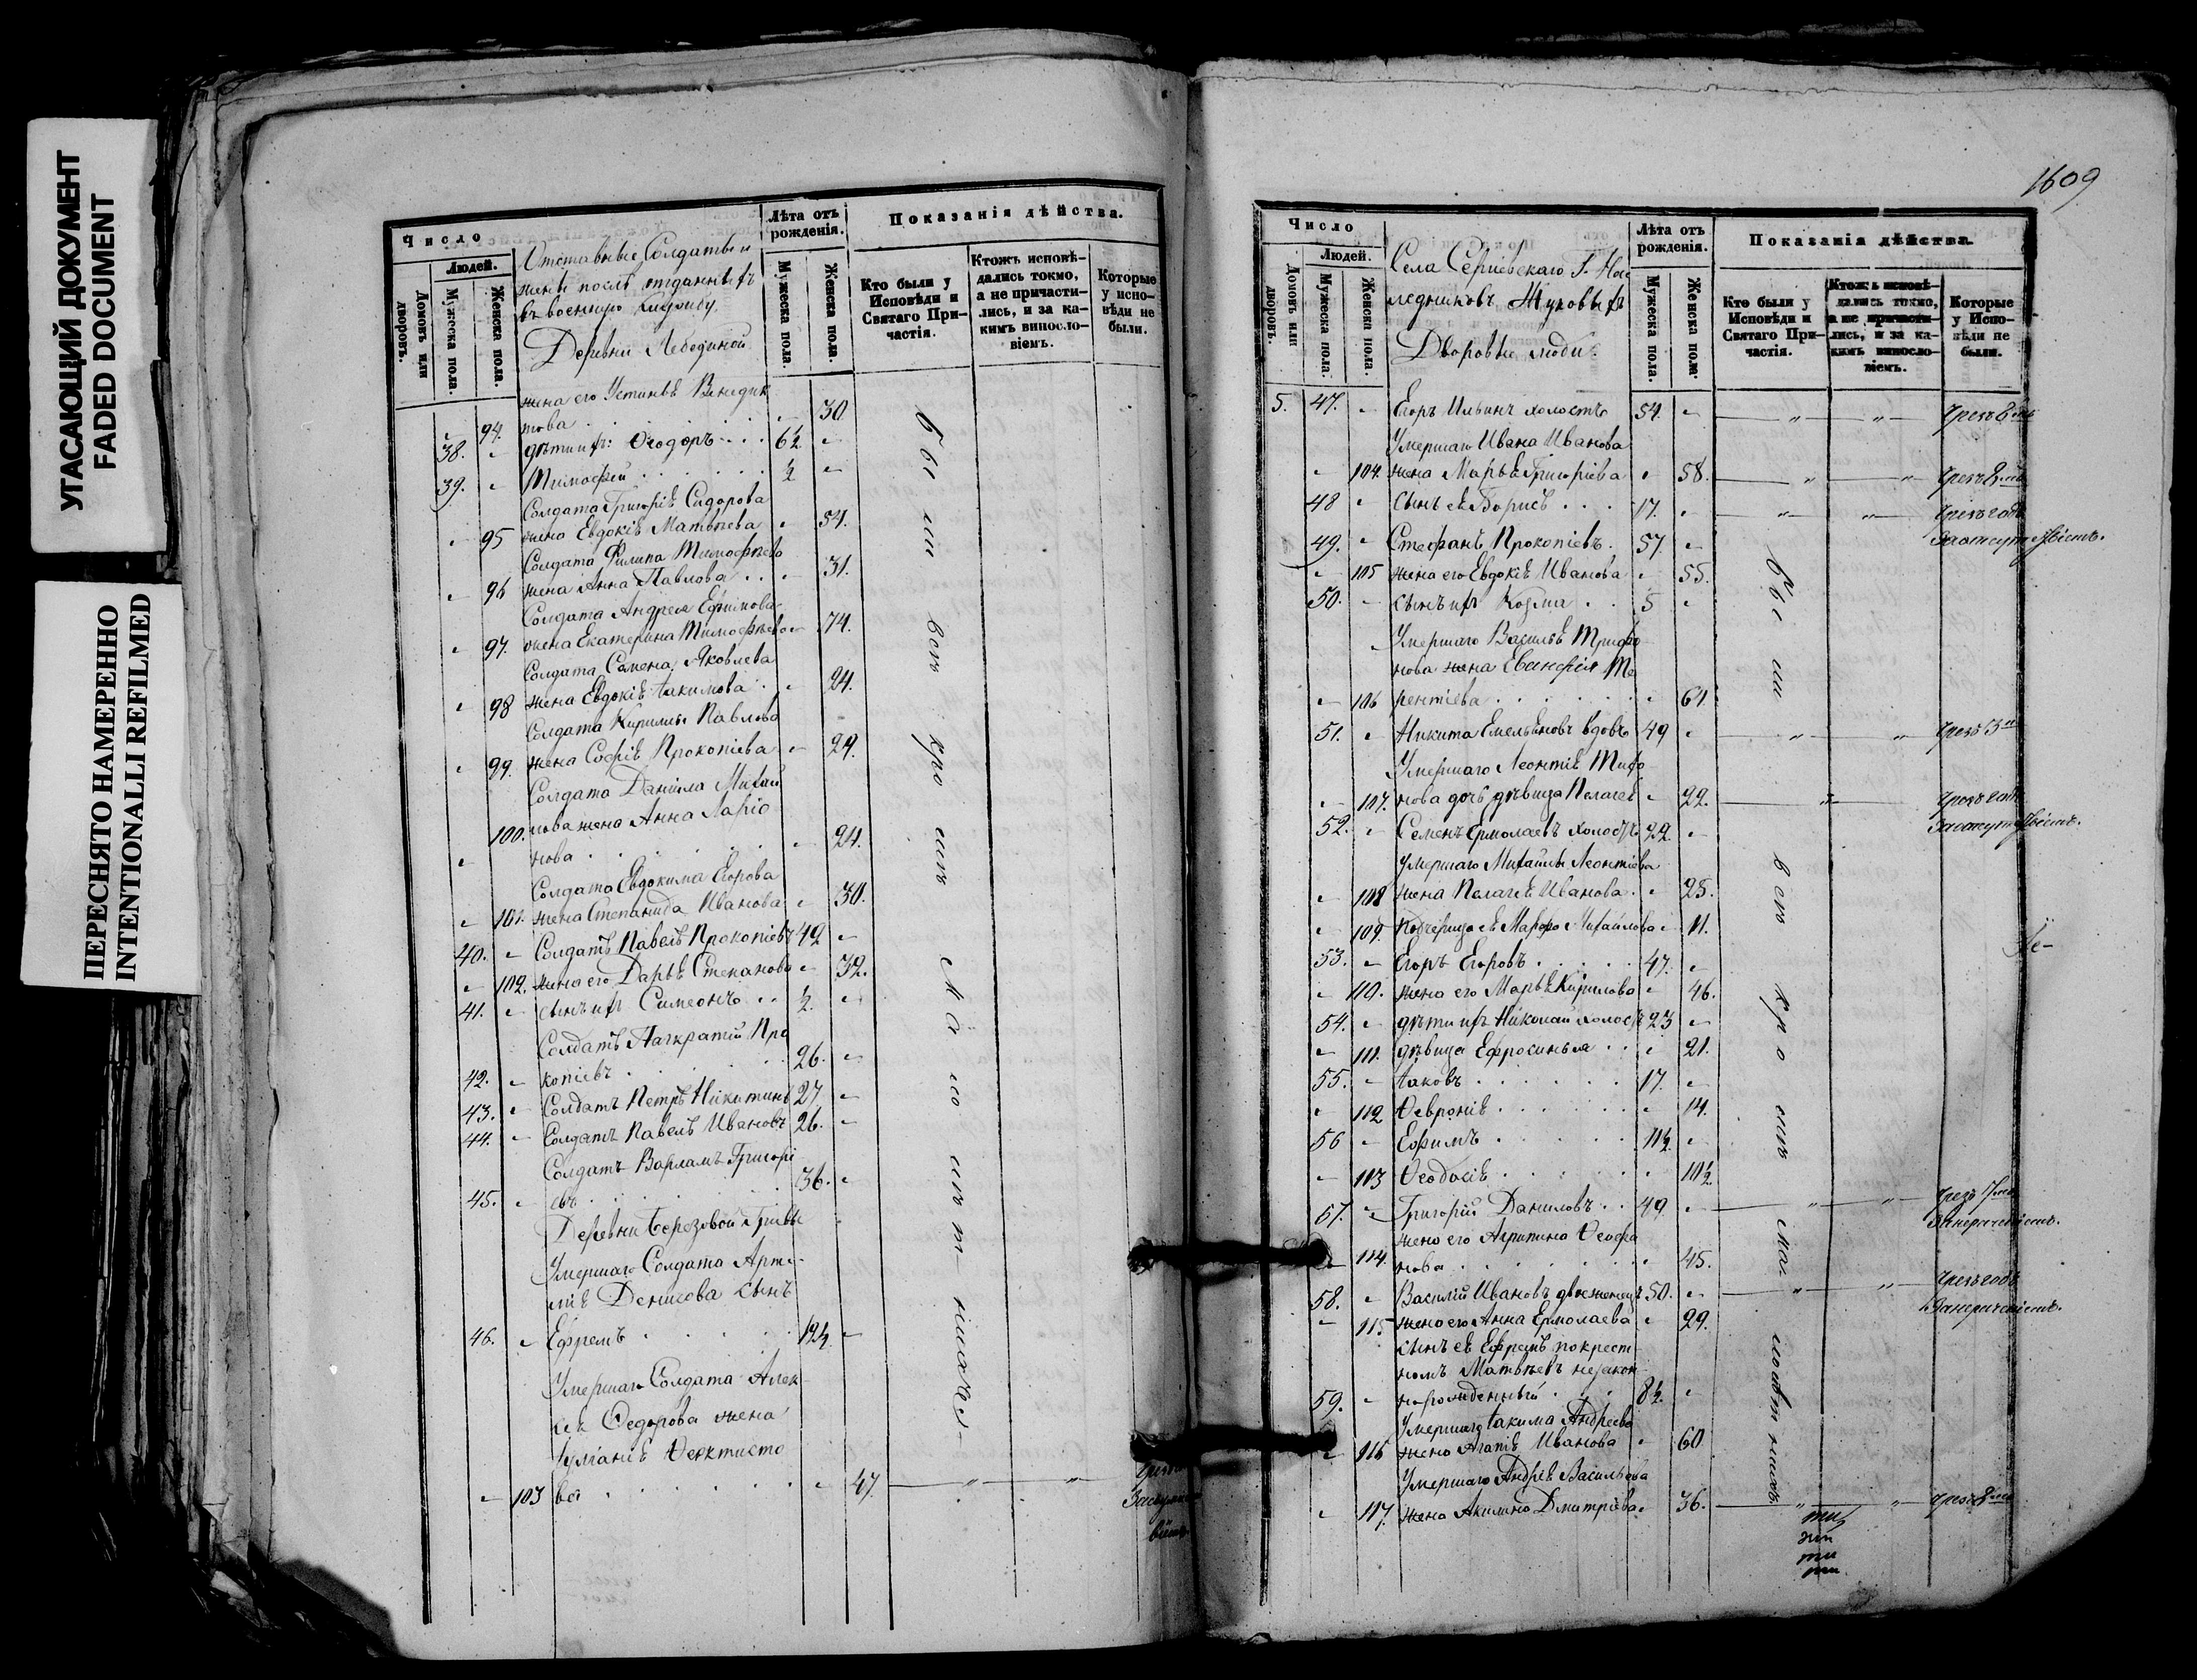 УГАСАЮЩИЙ ДОКУМЕНТ
FADED DOCUMENT
ПЕРЕСНЯТО НАМЕРЕННО
INTENTIONALLI REFILMED
Число
Людей.
Домовъ или дворовъ.
Мужеска пола.
Женска пола.
Отставные Солдаты и
жены послѣ отданныхъ
въ военную службу.
Деревни Лебединой
Лѣта отъ рожденія.
Мужеска пола.
Женска пола.
Показанія дѣйства.
Кто были у Исповѣди и Святаго Причастія.
Ктожъ исповѣдались токмо, а не причастились, и за какимъ винословіемъ.
Которые у исповѣди не были.
жена его Устинья Венедик
94. това 30
38. дѣти ихъ: Ѳеодоръ 6½
39. Тимофей ½
Солдата Григорія Сидорова
95 жена Евдокія Матвѣева 54.
Солдата Филипа Тимофѣева
96 жена Анна Павлова 31.
Солдата Андрея Ефимова
97. жена Екатерина Тимофѣева 74.
Солдата Семена Яковлева
98 жена Евдокія Іакимова 24.
Солдата Кирилы Павлова
99. жена Софія Прокопіева 29.
Солдата Даніила Михай
100. лова жена Анна Ларіо
нова 24.
Солдата Евдокима Егорова
101. жена Степанида Иванова 30.
40. Солдатъ Павелъ Прокопіевъ 42
102. жена его Дарья Степанова 32.
41. сынъ ихъ Симеонъ ½
Солдатъ Панкратій Про
42. копіевъ 26.
43. Солдатъ Петръ Никитинъ 27
44. Солдатъ Павелъ Ивановъ 26.
Солдатъ Варламъ Григорі
45. евъ 36.
Деревни Березовой Гривы
Умершаго Солдата Арте-
мія Денисова сынъ
46. Ефремъ 12½
Умершаго Солдата Алек
сѣя Ѳедорова жена
Іуліанія Ѳеоктисто
103 ва 47.
Были всѣ кромѣ малолѣтнихъ
1609
Число
Людей.
Домовъ или дворовъ.
Мужеска пола.
Женска пола.
Села Сергіевскаго Г. Нас
ледниковъ Жуковыхъ
Дворовые люди.
Лѣта отъ рожденія.
Мужеска пола.
Женска пола.
Показанія дѣйства.
Кто были у Исповѣди и Святаго Причастія.
Ктожъ исповѣдались токмо, а не причастились, и за какимъ винословіемъ.
Которые у Исповѣди не были.
5. 47. Егоръ Ильинъ холостъ 54.
Умершаго Ивана Иванова
104. жена Марья Григоріева 58.
48 сынъ ея Борисъ 17. чрезъ годъ
49. Стефанъ Прокопіевъ 57.
105 жена его Евдокія Иванова 55.
50. сынъ ихъ Козма 5
Умершаго Василья Трифо
нова жена Евгенія Те
106 рентіева 61.
51. Никита Емельяновъ вдовъ 49
Умершаго Леонтія Тихо
107. нова дочь дѣвица Пелагея 22. чрезъ годъ
52. Семенъ Ермолаевъ холостъ 22
Умершаго Михайлы Леонтіева
108 жена Пелагея Иванова 25.
109. подчерица ея Марфа Михайлова 11.
53. Егоръ Егоровъ 47.
110. жена его Марья Кирилова 46.
54. дѣти ихъ Николай холостъ 23
111. дѣвица Ефросинья 21.
55. Іаковъ 17.
112 Ѳевронія 14.
56 Ефимъ 11½
113 Ѳеодосія 10½
57. Григорій Даниловъ 49
жена его Агрипина Ѳеофа
114. нова 45.
58. Василій Ивановъ двоеженецъ 50. чрезъ годъ
115 жена его Анна Ермолаева 29.
сынъ ея Ефремъ по крест
номъ Матвѣевъ незакон
59. норожденный 8½
Умершаго Іакима Андреева
116 жена Агапія Иванова 60
Умершаго Андрея Васильева
117. жена Акилина Дмитріева 36.
Были всѣ кромѣ малолѣтнихъ